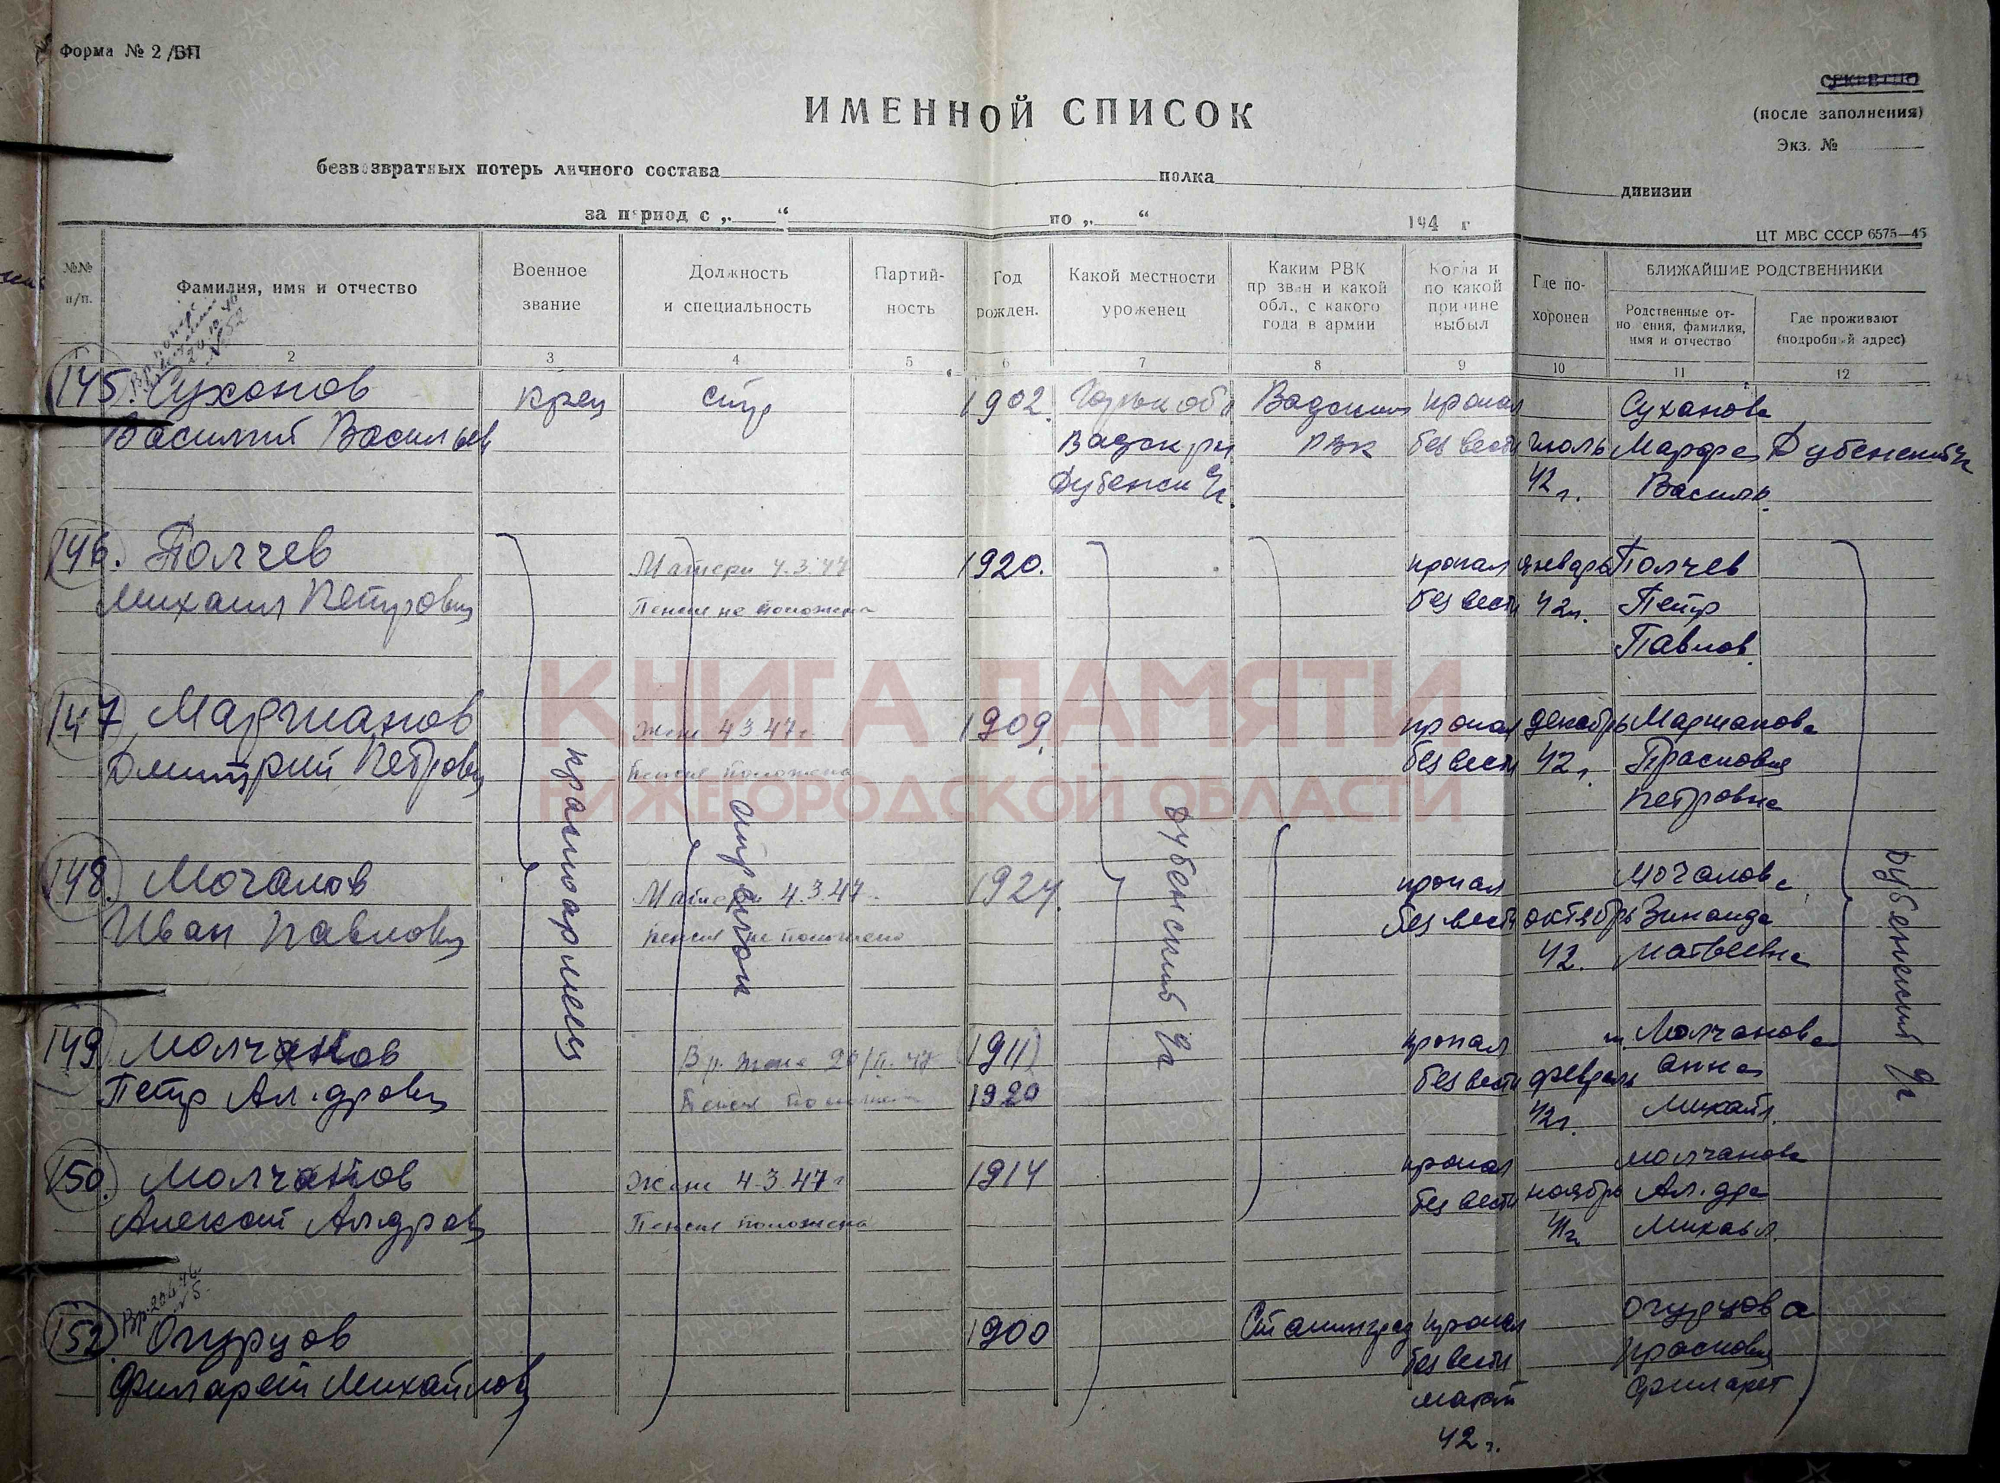 Форма № 2 /БП
СЕКРЕТНО
(после заполнения)
Экз. №
ИМЕННОЙ СПИСОК
безвозвратных потерь личного состава полка дивизии
за период с „ “ по „ “ 194 г
ЦТ МВС СССР 6575—45
№№ п/п.
Фамилия, имя и отчество
Военное звание
Должность и специальность
Партий-ность
Год рожден.
Какой местности уроженец
Каким РВК призван и какой обл., с какого года в армии
Когда и по какой причине выбыл
Где по-хоронен
БЛИЖАЙШИЕ РОДСТВЕННИКИ
Родственные от-ношения, фамилия, имя и отчество
Где проживают (подробный адрес)
2 3 4 5 6 7 8 9 10 11 12
145. Суханов крец стр 1902. Горьк обл Вадским пропал Суханова
Василий Васильев Вадск рн РВК без вести июль Марфа Дубенский
Дубенск 42 г. Василь.
146. Толчев Матери 4.3.47 1920. пропал январь Толчев
Михаил Петрович Пенсия не положена без вести 42г. Петр
Павлов.
147 Маршанов Жене 4 3 47 г 1909. пропал декабрь Маршанова
Дмитрий Петрович Пенсия положена без вести 42 г. Прасковия
Петровна
красноармеец
стрелок
Дубенский
Дубенский
148. Мочалов Матери 4.3.47 1924. пропал Мочалова
Иван Павлович Пенсия не положено без вести октябрь Зинаида
42. Матвеевна
149 Молчанов Вр. жена 1911 пропал Молчанова
Петр Ал.дрович Пенсия положена 1920 без вести февраль Анна
42г. Михайл.
150. Молчанов Жене 4 3 47 г 1914 пропал Молчанова
Алексей Ал.дров Пенсия положена без вести ноябрь Ал.дра
41г Михайл.
152. Огурцов 1900 Сталинград пропал Огурцова
Филарет Михайлов без вести Прасковия
май 42 г. Филарет
КНИГА ПАМЯТИ
НИЖЕГОРОДСКОЙ ОБЛАСТИ
ПАМЯТЬ НАРОДА